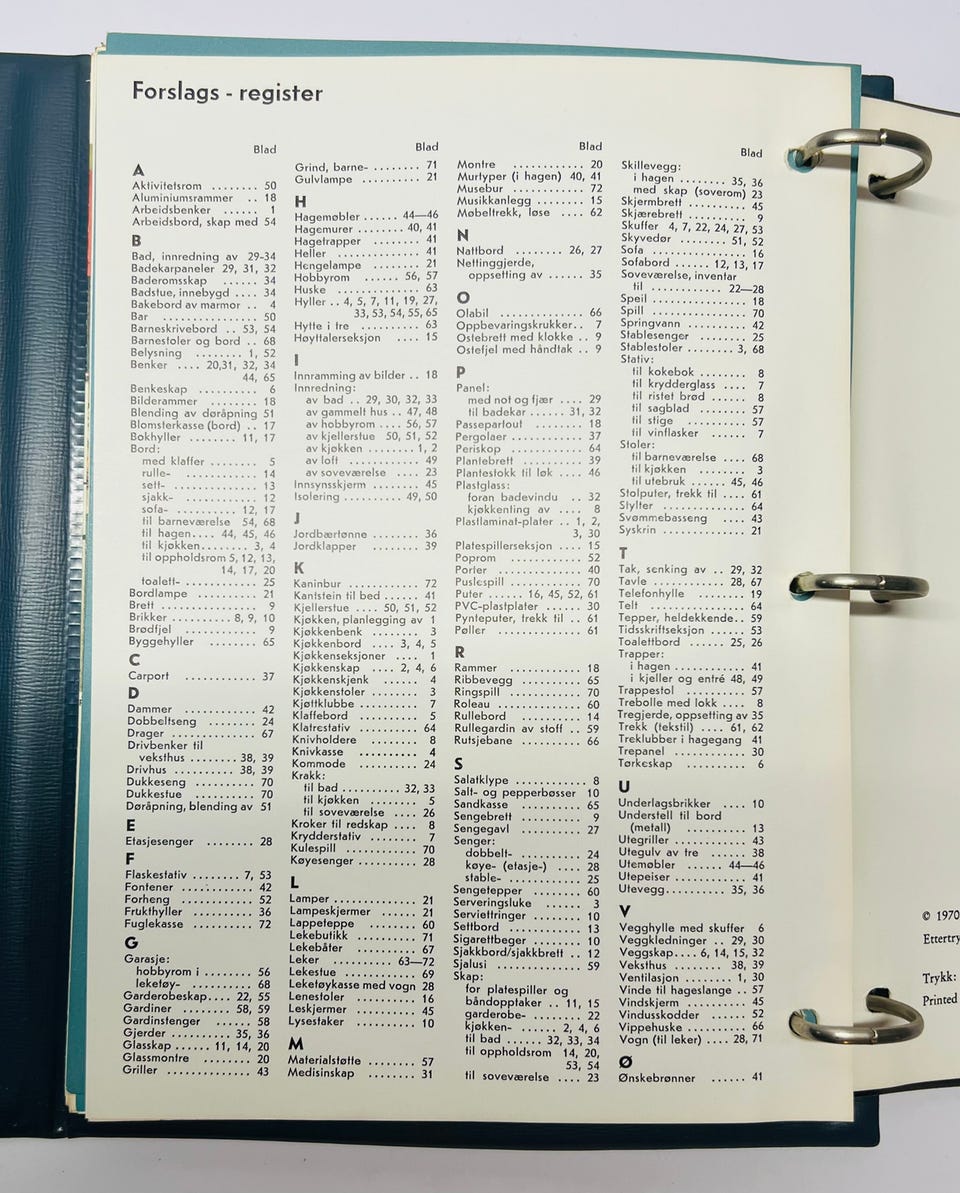 Forslags - register
Blad
A
Aktivitetsrom ........ 50
Aluminiumsrammer .. 18
Arbeidsbenker ...... 1
Arbeidsbord, skap med 54
B
Bad, innredning av 29-34
Badekarpaneler 29, 31, 32
Baderomsskap ...... 34
Badstue, innebygd .... 34
Bakebord av marmor .. 4
Bar ................. 50
Barneskrivebord .. 53, 54
Barnestoler og bord .. 68
Belysning ........ 1, 52
Benker .... 20,31, 32, 34
44, 65
Benkeskap .......... 6
Bilderammer ........ 18
Blending av døråpning 51
Blomsterkasse (bord) .. 17
Bokhyller ........ 11, 17
Bord:
med klaffer ........ 5
rulle- ............. 14
sett- ............. 13
sjakk- ............. 12
sofa- .......... 12, 17
til barneværelse 54, 68
til hagen.... 44, 45, 46
til kjøkken........ 3, 4
til oppholdsrom 5, 12, 13,
14, 17, 20
toalett- ............ 25
Bordlampe .......... 21
Brett ............... 9
Brikker ........ 8, 9, 10
Brødfjel ............ 9
Byggehyller ........ 65
C
Carport ............ 37
D
Dammer ............ 42
Dobbeltseng ........ 24
Drager ............. 67
Drivbenker til
veksthus ........ 38, 39
Drivhus .......... 38, 39
Dukkeseng .......... 70
Dukkestue .......... 70
Døråpning, blending av 51
E
Etasjesenger ........ 28
F
Flaskestativ ........ 7, 53
Fontener ........... 42
Forheng ............ 52
Frukthyller ......... 36
Fuglekasse .......... 72
G
Garasje:
hobbyrom i ........ 56
leketøy- ........... 68
Garderobeskap.... 22, 55
Gardiner ........ 58, 59
Gardinstenger ...... 58
Gjerder .......... 35, 36
Glasskap ...... 11, 14, 20
Glassmontre ........ 20
Griller ............. 43
Blad
Grind, barne- ........ 71
Gulvlampe .......... 21
H
Hagemøbler ...... 44—46
Hagemurer ........ 40, 41
Hagetrapper ........ 41
Heller ............. 41
Hengelampe ........ 21
Hobbyrom ........ 56, 57
Huske .............. 63
Hyller .. 4, 5, 7, 11, 19, 27,
33, 53, 54, 55, 65
Hytte i tre .......... 63
Høyttalerseksjon .... 15
I
Innramming av bilder .. 18
Innredning:
av bad .. 29, 30, 32, 33
av gammelt hus .. 47, 48
av hobbyrom .... 56, 57
av kjellerstue 50, 51, 52
av kjøkken ........ 1, 2
av loft ............ 49
av soveværelse .... 23
Innsynsskjerm ...... 45
Isolering .......... 49, 50
J
Jordbærtønne ........ 36
Jordklapper ........ 39
K
Kaninbur ........... 72
Kantstein til bed ...... 41
Kjellerstue .... 50, 51, 52
Kjøkken, planlegging av 1
Kjøkkenbenk ........ 3
Kjøkkenbord .... 3, 4, 5
Kjøkkenseksjoner .... 1
Kjøkkenskap .... 2, 4, 6
Kjøkkenskjenk ...... 4
Kjøkkenstoler ........ 3
Kjøttklubbe ......... 7
Klaffebord .......... 5
Klatrestativ ......... 64
Knivholdere ........ 8
Knivkasse .......... 4
Kommode .......... 24
Krakk:
til bad .......... 32, 33
til kjøkken ........ 5
til soveværelse .... 26
Kroker til redskap .... 8
Krydderstativ ........ 7
Kulespill ............ 70
Køyesenger ......... 28
L
Lamper ............. 21
Lampeskjermer ...... 21
Lappeteppe ......... 60
Lekebutikk .......... 71
Lekebåter .......... 67
Leker .......... 63—72
Lekestue ............ 69
Leketøykasse med vogn 28
Lenestoler .......... 16
Leskjermer .......... 45
Lysestaker .......... 10
M
Materialstøtte ........ 57
Medisinskap ........ 31
Blad
Montre ............ 20
Murtyper (i hagen) 40, 41
Musebur ........... 72
Musikkanlegg ....... 15
Møbeltrekk, løse .... 62
N
Nattbord ........ 26, 27
Nettinggjerde,
oppsetting av ...... 35
O
Olabil ............. 66
Oppbevaringskrukker.. 7
Ostebrett med klokke .. 9
Ostefjel med håndtak .. 9
P
Panel:
med not og fjær .... 29
til badekar ...... 31, 32
Passepartout ........ 18
Pergolaer ........... 37
Periskop ............ 64
Plantebrett .......... 39
Plantestokk til løk .... 46
Plastglass:
foran badevindu .. 32
kjøkkenting av .... 8
Plastlaminat-plater .. 1, 2,
3, 30
Platespillerseksjon .... 15
Poprom ............ 52
Porter ............. 40
Puslespill ........... 70
Puter ...... 16, 45, 52, 61
PVC-plastplater ...... 30
Pynteputer, trekk til .. 61
Pøller .............. 61
R
Rammer ........... 18
Ribbevegg .......... 65
Ringspill ........... 70
Roleau ............. 60
Rullebord .......... 14
Rullegardin av stoff .. 59
Rutsjebane ......... 66
S
Salatklype .......... 8
Salt- og pepperbøsser 10
Sandkasse .......... 65
Sengebrett .......... 9
Sengegavl .......... 27
Senger:
dobbelt- ........... 24
køye- (etasje-) .... 28
stable- ............ 25
Sengetepper ........ 60
Serveringsluke ...... 3
Serviettringer ........ 10
Settbord ........... 13
Sigarettbeger ........ 10
Sjakkbord/sjakkbrett .. 12
Sjalusi ............. 59
Skap:
for platespiller og
båndopptaker .. 11, 15
garderobe- ........ 22
kjøkken- ...... 2, 4, 6
til bad ...... 32, 33, 34
til oppholdsrom 14, 20,
53, 54
til soveværelse .... 23
Blad
Skillevegg:
i hagen ........ 35, 36
med skap (soverom) 23
Skjermbrett ......... 45
Skjærebrett ......... 9
Skuffer 4, 7, 22, 24, 27, 53
Skyvedør ........ 51, 52
Sofa ............... 16
Sofabord ...... 12, 13, 17
Soveværelse, inventar
til ............ 22—28
Speil .............. 18
Spill .............. 70
Springvann ......... 42
Stablesenger ........ 25
Stablestoler ........ 3, 68
Stativ:
til kokebok ........ 8
til krydderglass .... 7
til ristet brød ...... 8
til sagblad ........ 57
til stige .......... 57
til vinflasker ...... 7
Stoler:
til barneværelse .... 68
til kjøkken ........ 3
til utebruk ...... 45, 46
Stolputer, trekk til .... 61
Stylter ............. 64
Svømmebasseng .... 43
Syskrin ............ 21
T
Tak, senking av .. 29, 32
Tavle .......... 28, 67
Telefonhylle ........ 19
Telt .............. 64
Tepper, heldekkende.. 59
Tidsskriftseksjon ..... 53
Toalettbord ...... 25, 26
Trapper:
i hagen ............ 41
i kjeller og entré 48, 49
Trappestol .......... 57
Trebolle med lokk .... 8
Tregjerde, oppsetting av 35
Trekk (tekstil) .... 61, 62
Treklubber i hagegang 41
Trepanel ........... 30
Tørkeskap .......... 6
U
Underlagsbrikker .... 10
Understell til bord
(metall) .......... 13
Utegriller .......... 43
Utegulv av tre ...... 38
Utemøbler ...... 44—46
Utepeiser .......... 41
Utevegg.......... 35, 36
V
Vegghylle med skuffer 6
Veggkledninger .. 29, 30
Veggskap.... 6, 14, 15, 32
Veksthus ........ 38, 39
Ventilasjon ........ 1, 30
Vinde til hageslange .. 57
Vindskjerm ......... 45
Vindusskodder ...... 52
Vippehuske ......... 66
Vogn (til leker) .... 28, 71
Ø
Ønskebrønner ...... 41
© 1970
Ettertry
Trykk:
Printed